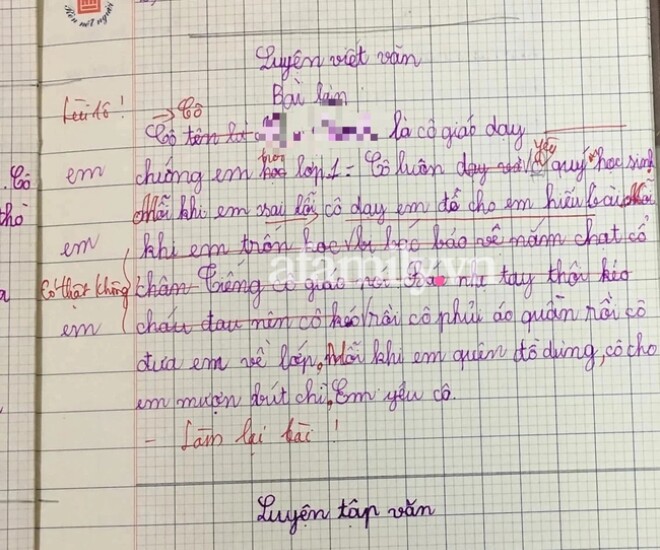 Rèn nét người
Luyện viết văn
Bài làm
Lùi 1 ô!
→ Cô
Cô tên là là cô giáo dạy
Cô em chúng em học trong lớp 1. Cô luôn dạy yêu quý học sinh
thò Mỗi khi em sai lỗi cô dạy em để cho em hiểu bài. Mỗi
em khi em trốn học bảo vệ nắm chat cổ
a Có thật không chân. Tiếng cô giáo tha nhẹ tay thôi kẻo
em cháu đau nên cô kéo rồi cô phủi áo quần rồi cô
đưa em về lớp. Mỗi khi em quên đồ dùng, cô cho
em mượn bút chì. Em yêu cô.
- Làm lại bài!
afamily.vn
Luyện tập văn